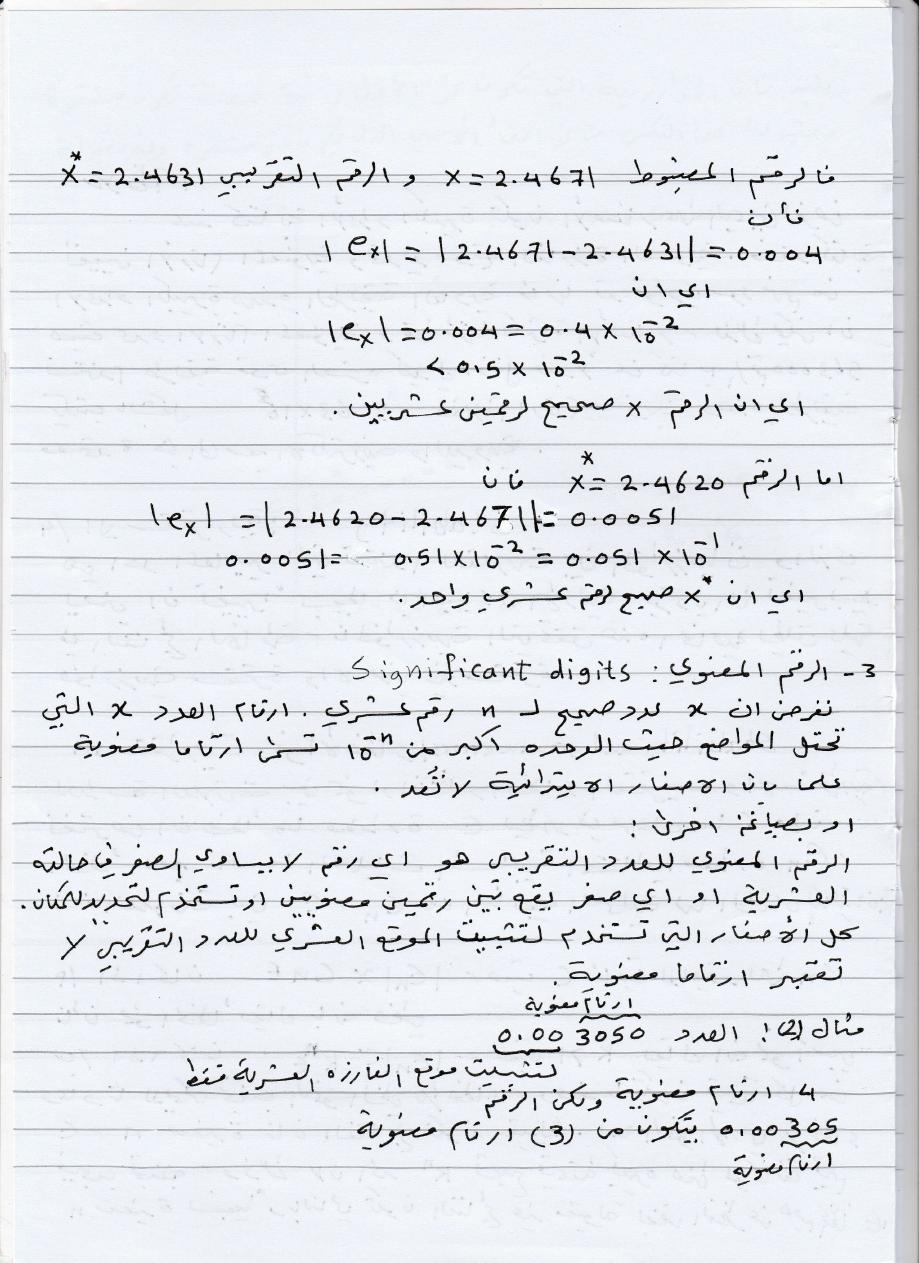 فالرقم المضبوط x = 2.4671 والرقم التقريبي x* = 2.4631
فأن
|e_x| = |2.4671 - 2.4631| = 0.004
اي ان
|e_x| = 0.004 = 0.4 × 10⁻²
< 0.5 × 10⁻²
اي ان الرقم x صحيح لرقمين عشريين .
اما الرقم x* = 2.4620 فان
|e_x| = |2.4620 - 2.4671| = 0.0051
0.0051 = 0.51 × 10⁻² = 0.051 × 10⁻¹
اي ان x* صحيح لرقم عشري واحد .
3- الرقم المعنوي : Significant digits
نفرض ان x عدد صحيح لـ n رقم عشري . ارقام العدد x التي
تحتل المواضع حيث الوحده اكبر من 10⁻ⁿ تسمى ارقاما معنوية
علما بان الاصفار الابتدائية لا تُعد .
او بصياغة اخرى :
الرقم المعنوي للعدد التقريبي هو اي رقم لا يساوي الصفر في حالته
العشرية او اي صفر يقع بين رقمين معنويين او تستخدم لتحديد المكان .
كل الأصفار التي تستخدم لتثبيت الموقع العشري للعدد التقريبي لا
تعتبر ارقاما معنوية .
ارقام معنوية
مثال (2) : العدد 0.003050
لتثبيت موقع الفارزه العشرية فقط
4 ارقام معنوية ولكن الرقم
0.00305 يتكون من (3) ارقام معنوية
ارقام معنوية